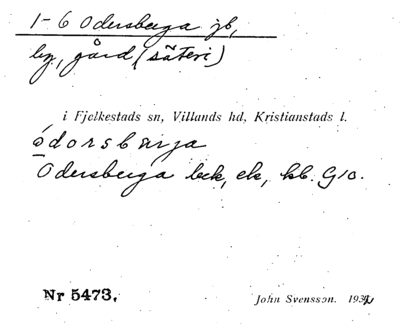 1-6 Odersberga jb,
by, gård (säteri)
i Fjelkestads sn, Villands hd, Kristianstads l.
ódorsbärja
Odersberga bck, ek, kb. G10.
Nr 5473. John Svensson. 1932